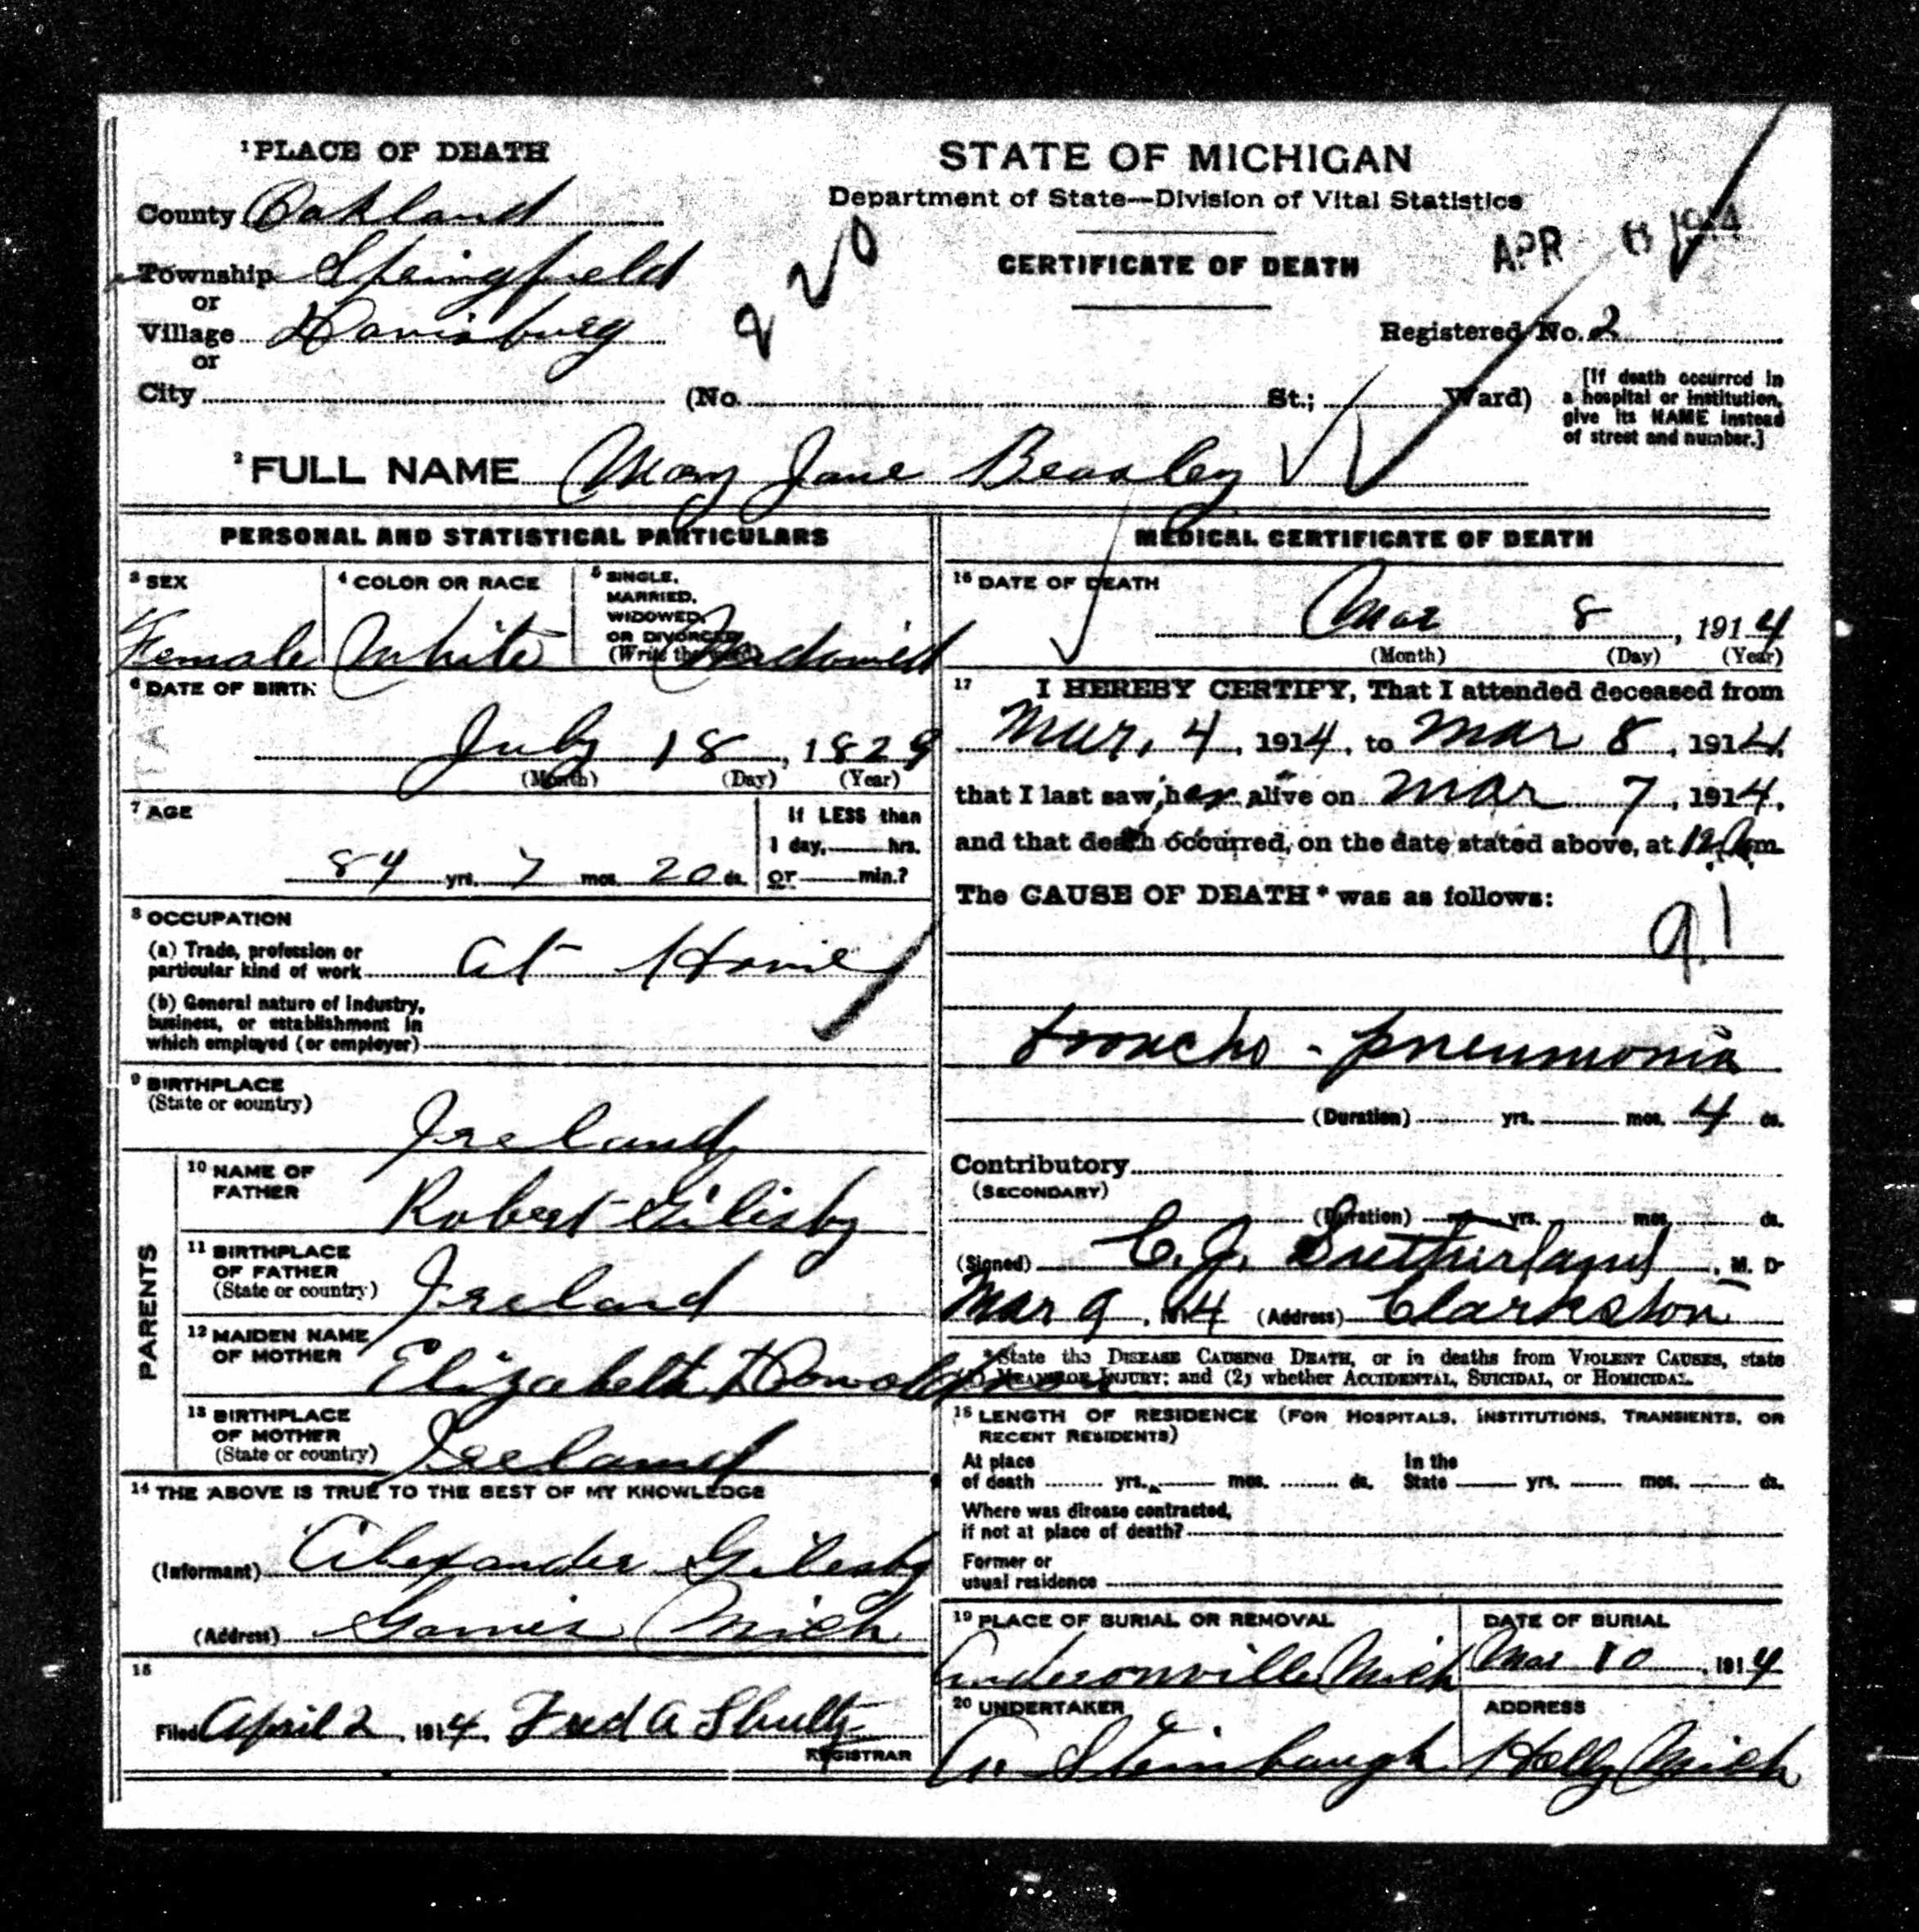 1 PLACE OF DEATH
County Oakland
Township Springfield
or
Village Davisburg
or
City (No. St.; Ward)
STATE OF MICHIGAN
Department of State—Division of Vital Statistics
CERTIFICATE OF DEATH
220
APR 1914
Registered No. 2
[If death occurred in
a hospital or institution,
give its NAME instead
of street and number.]
2 FULL NAME Mary Jane Beasley
PERSONAL AND STATISTICAL PARTICULARS
3 SEX
Female
4 COLOR OR RACE
White
5 SINGLE,
MARRIED,
WIDOWED,
OR DIVORCED
(Write the word) Widowed
6 DATE OF BIRTH
July 18, 1829
(Month) (Day) (Year)
7 AGE
84 yrs. 7 mos. 20 ds.
If LESS than
1 day, hrs.
or min.?
8 OCCUPATION
(a) Trade, profession or
particular kind of work At Home
(b) General nature of industry,
business, or establishment in
which employed (or employer)
9 BIRTHPLACE
(State or country)
Ireland
PARENTS
10 NAME OF
FATHER
Robert Gilisby
11 BIRTHPLACE
OF FATHER
(State or country)
Ireland
12 MAIDEN NAME
OF MOTHER
Elizabeth Donaldson
13 BIRTHPLACE
OF MOTHER
(State or country)
Ireland
14 THE ABOVE IS TRUE TO THE BEST OF MY KNOWLEDGE
(Informant) Alexander Gilesby
(Address) Mich
15
Filed April 2, 1914. Fred A Shultz
REGISTRAR
MEDICAL CERTIFICATE OF DEATH
16 DATE OF DEATH
Mar 8, 1914
(Month) (Day) (Year)
17 I HEREBY CERTIFY, That I attended deceased from
Mar, 4, 1914, to Mar 8, 1914,
that I last saw her alive on Mar 7, 1914,
and that death occurred, on the date stated above, at 12 A m.
The CAUSE OF DEATH* was as follows:
91
broncho-pneumonia
(Duration) yrs. mos. 4 ds.
Contributory
(SECONDARY)
(Duration) yrs. mos. ds.
(Signed) C. J. Sutherland, M. D
Mar 9, 1914 (Address) Clarkston
*State the DISEASE CAUSING DEATH, or in deaths from VIOLENT CAUSES, state
(1) MEANS OF INJURY; and (2) whether ACCIDENTAL, SUICIDAL, or HOMICIDAL.
18 LENGTH OF RESIDENCE (FOR HOSPITALS, INSTITUTIONS, TRANSIENTS, OR
RECENT RESIDENTS)
At place
of death yrs. mos. ds.
In the
State yrs. mos. ds.
Where was disease contracted,
if not at place of death?
Former or
usual residence
19 PLACE OF BURIAL OR REMOVAL
Andersonville Mich
DATE OF BURIAL
Mar 10, 1914
20 UNDERTAKER
Steinbaugh
ADDRESS
Holly Mich